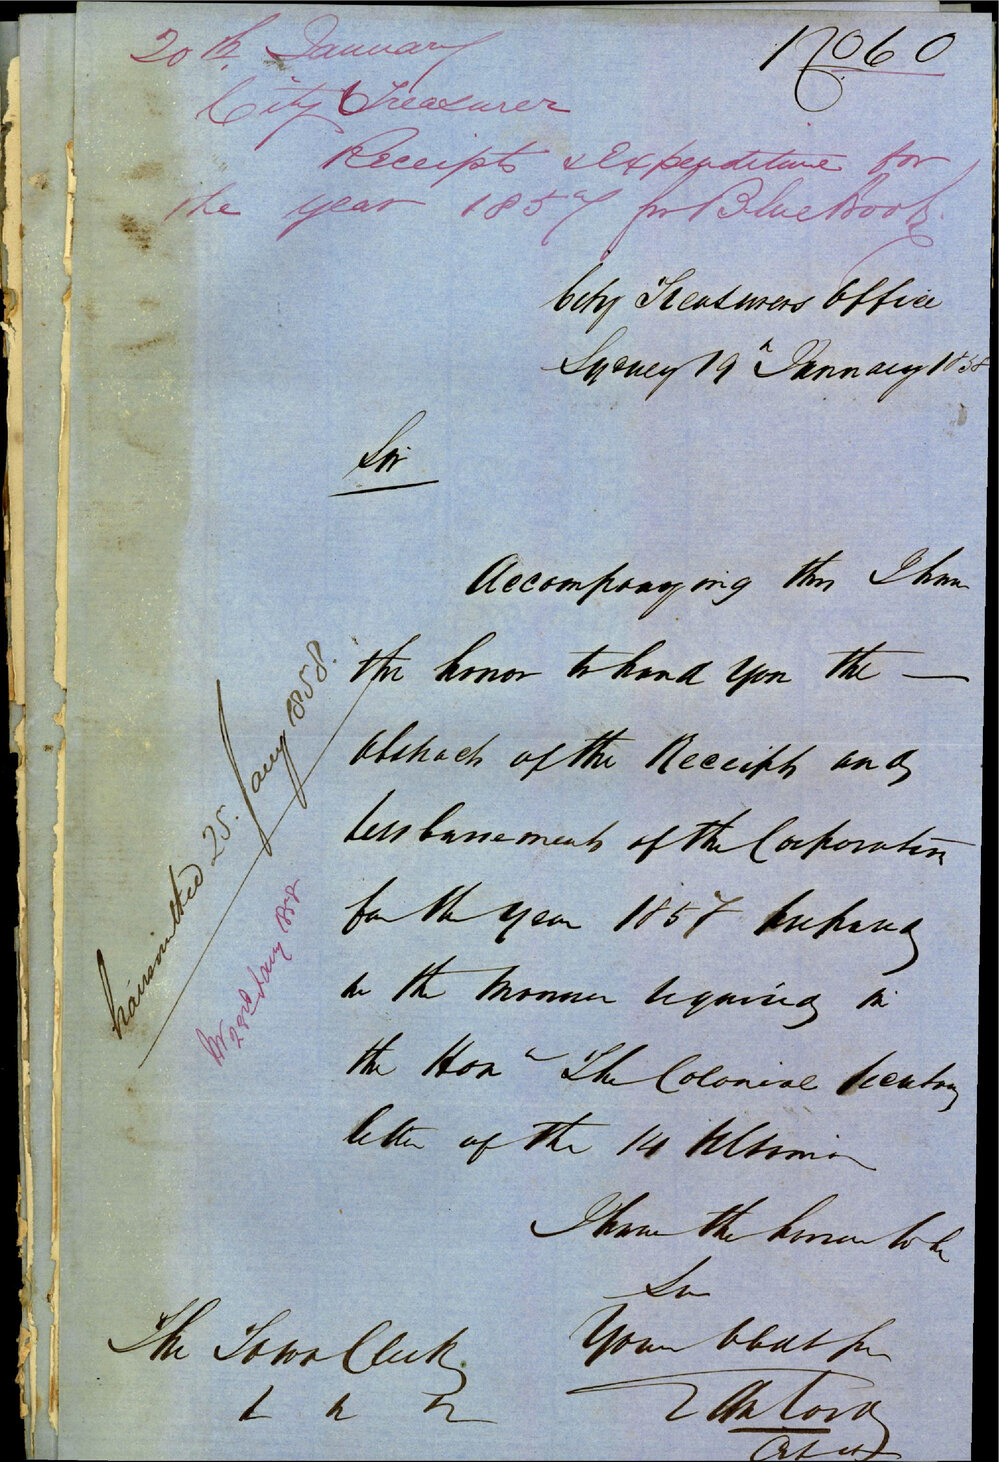 20th January
City Treasurer
Receipts & Expenditure for
the year 1857 for Blue Book.
City Treasurers Office
Sydney 19th January 1858
Sir
Accompanying this I have
the honor to hand you the —
abstract of the Receipts and
Disbursements of the Corporation
for the year 1857 prepared
in the manner required in
the Honble The Colonial Secretary
letter of the 14 Ultimo
I have the honor to be
Sir
Your Obdt
The Town Clerk
transmitted 25. Jany 1858.
23rd Jany 1858